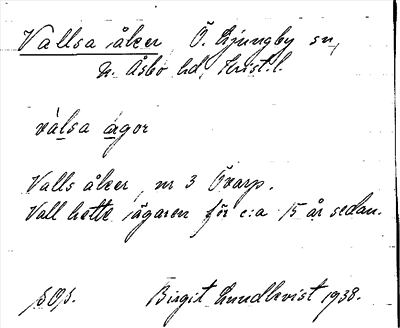 Vallsa åker, Ö. Ljungby sn,
N. Åsbo hd, Krist.l.
válsa ågor
Valls åker, nr 3 Övarp.
Vall hette ägaren för c:a 15 år sedan.
Birgit Lundkvist 1938.